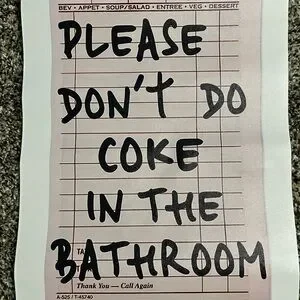 BEV • APPET • SOUP/SALAD • ENTREE • VEG • DESSERT
PLEASE
DON'T DO
COKE
IN THE
TA
BATHROOM
Thank You — Call Again
A-525 / T-45740